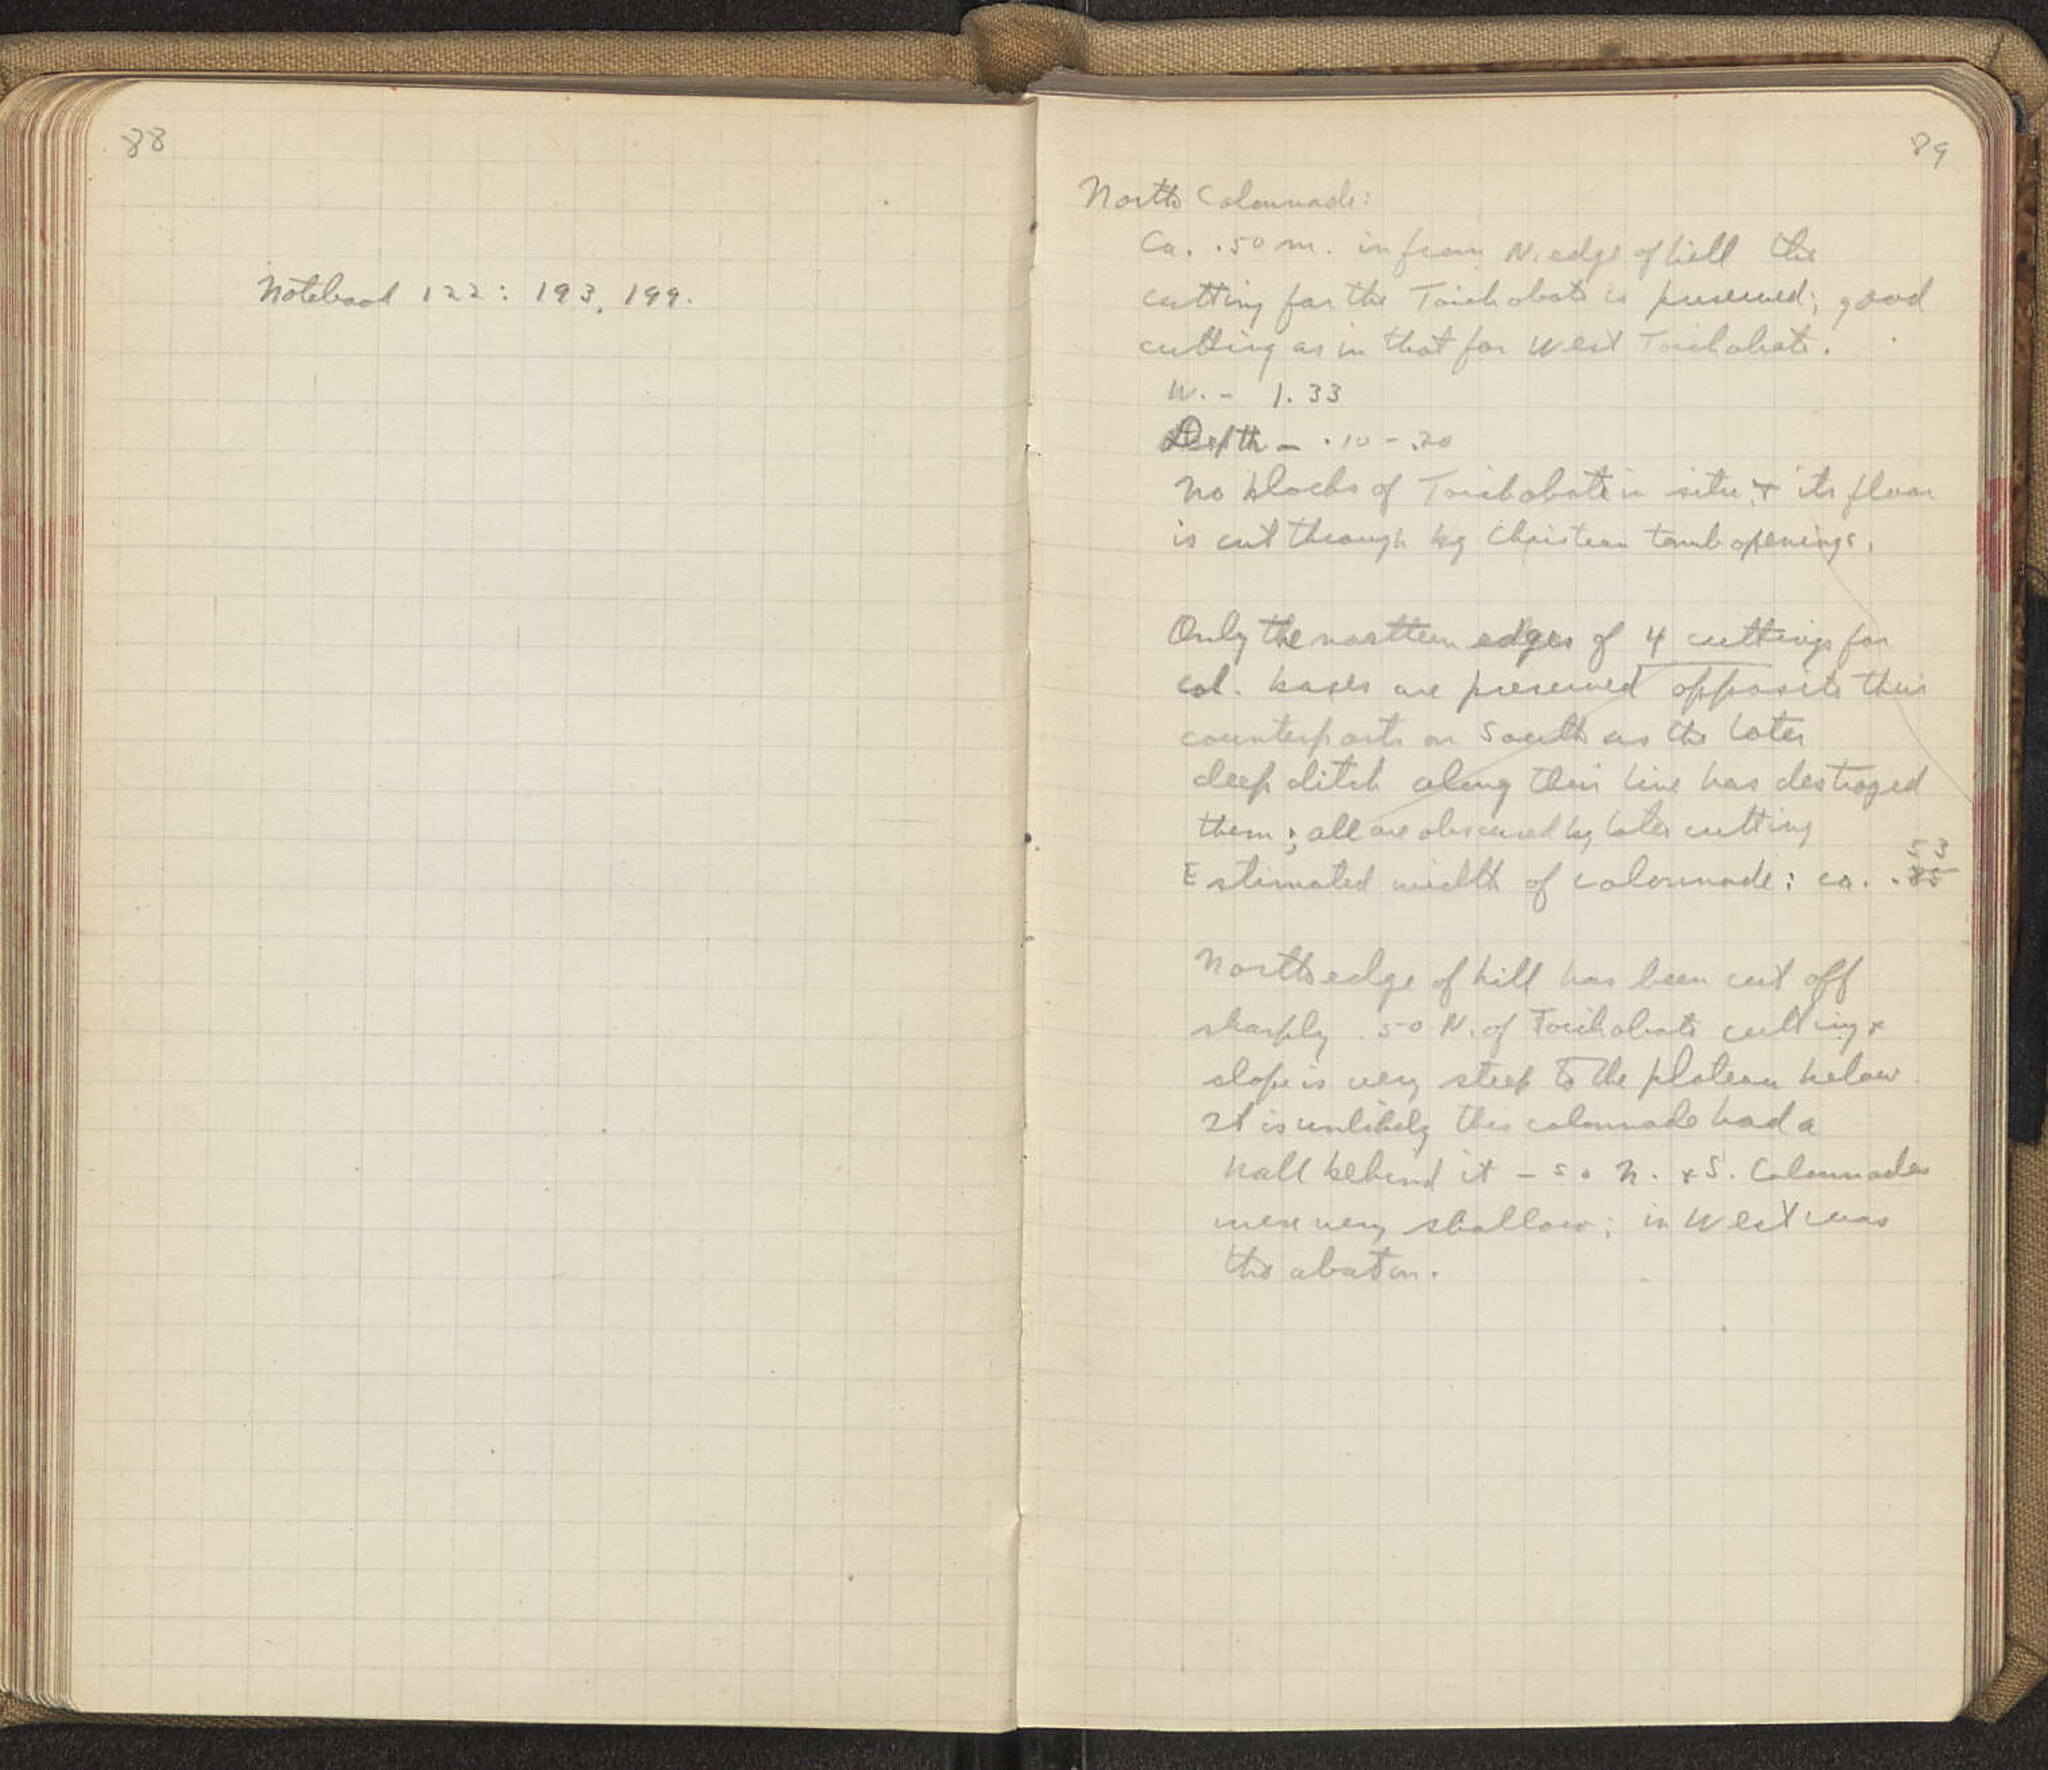 88
Notebook 122: 193, 199.
89
North Colonnade:
Ca. .50 m. in from N. edge of hill the
cutting for the Toichobate is preserved; good
cutting as in that for West Toichobate.
W. - 1.33
Depth - .10 - .20
No blocks of Toichobate in situ; + its floor
is cut through by Christian tomb openings.
Only the northern edges of 4 cuttings for
col. bases are preserved opposite their
counterparts on South as the later
deep ditch along their line has destroyed
them; all are obscured by later cutting
53
Estimated width of colonnade: ca. .85
North edge of hill has been cut off
sharply .50 N. of Toichobate cutting +
slope is very steep to the plateau below
It is unlikely this colonnade had a
hall behind it - so N. + S. Colonnades
were very shallow; in West was
the abaton.